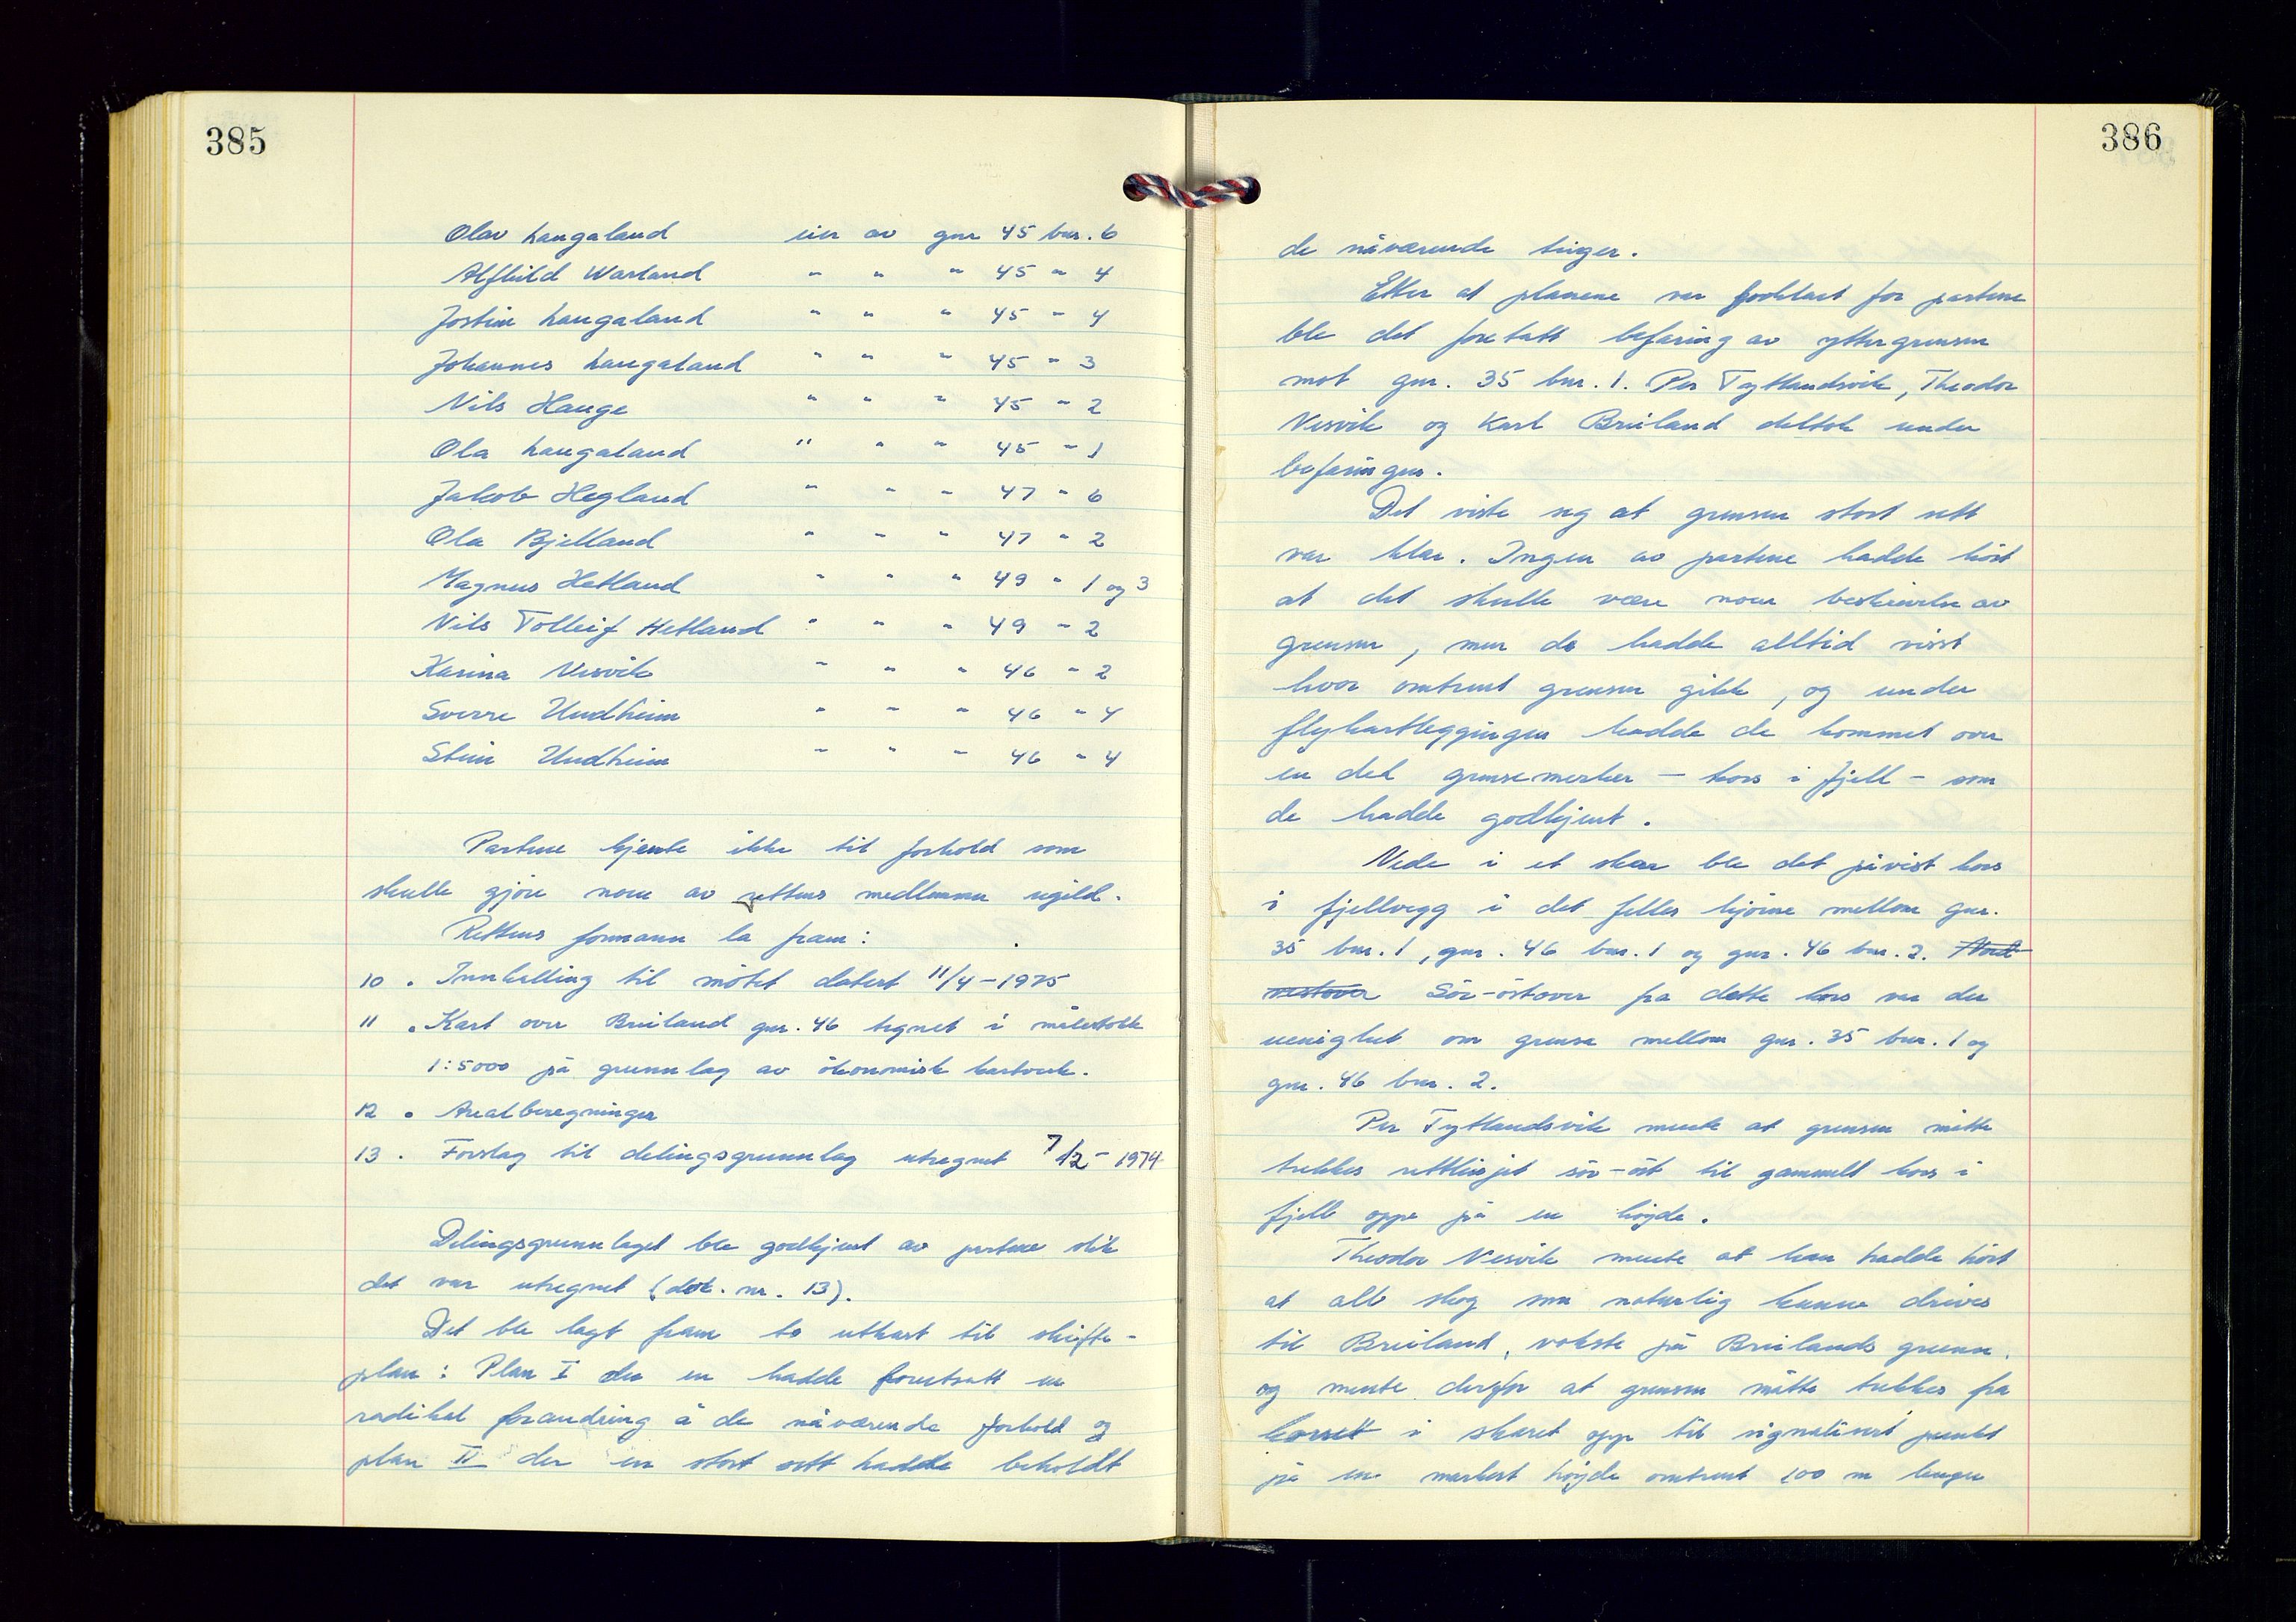 385
Olav Langaland eier av gnr 45 bnr. 6
Alfhild Warland " " " 45 " 4
Jostein Langaland " " " 45 " 4
Johannes Langaland " " " 45 " 3
Nils Hauge " " " 45 " 2
Ola Langaland " " " 45 " 1
Jakob Hegland " " " 47 " 6
Ola Bjelland " " " 47 " 2
Magnus Hetland " " " 49 " 1 og 3
Nils Tolleif Hetland " " " 49 " 2
Karina Nesvik " " " 46 " 2
Sverre Undheim " " " 46 " 4
Stein Undheim " " " 46 " 4
Partene kjente ikke til forhold som
skulle gjøre noen av rettens medlemmer ugild.
Rettens formann la fram:
10 . Innkalling til møtet datert 11/4-1975
11 . Kart over Breiland gnr. 46 tegnet i målestokk
1:5000 på grunnlag av økonomisk kartverk.
12 . Arealberegninger
13 . Forslag til delingsgrunnlag utregnet 7/12-1974
Delingsgrunnlaget ble godkjent av partene slik
det var utregnet (dok. nr. 13).
Det ble lagt fram to utkast til skifte-
plan: Plan I der en hadde foretatt en
radikal forandring å de nåværende forhold og
plan II der en stort sett hadde beholdt
386
de nåværende teiger.
Etter at planene var forklart for partene
ble det foretatt befaring av yttergrensen
mot gnr. 35 bnr. 1. Per Tytlandsvik, Theodor
Nesvik og Karl Breiland deltok under
befaringen.
Det viste seg at grensen stort sett
var klar. Ingen av partene hadde hørt
at det skulle være noen beskrivelse av
grensen, men de hadde alltid visst
hvor omtrent grensen gikk, og under
flykartleggingen hadde de kommet over
en del grensemerker – kors i fjell – som
de hadde godkjent.
Nede i et skar ble det påvist kors
i fjellvegg i det felles hjørne mellom gnr.
35 bnr. 1, gnr. 46 bnr. 1 og gnr. 46 bnr. 2. Nord
vestover Sør-østover fra dette kors var der
uenighet om grense mellom gnr. 35 bnr. 1 og
gnr. 46 bnr. 2.
Per Tytlandsvik mente at grensen måtte
trekkes rettlinjet sør-øst til gammelt kors i
fjell oppe på en høyde.
Theodor Nesvik mente at han hadde hørt
at all skog som naturlig kunne drives
til Breiland, vokste på Breilands grunn,
og mente derfor at grensen måtte trekkes fra
korset i skaret opp til signalisert punkt
på en markert høyde omtrent 100 m lenger